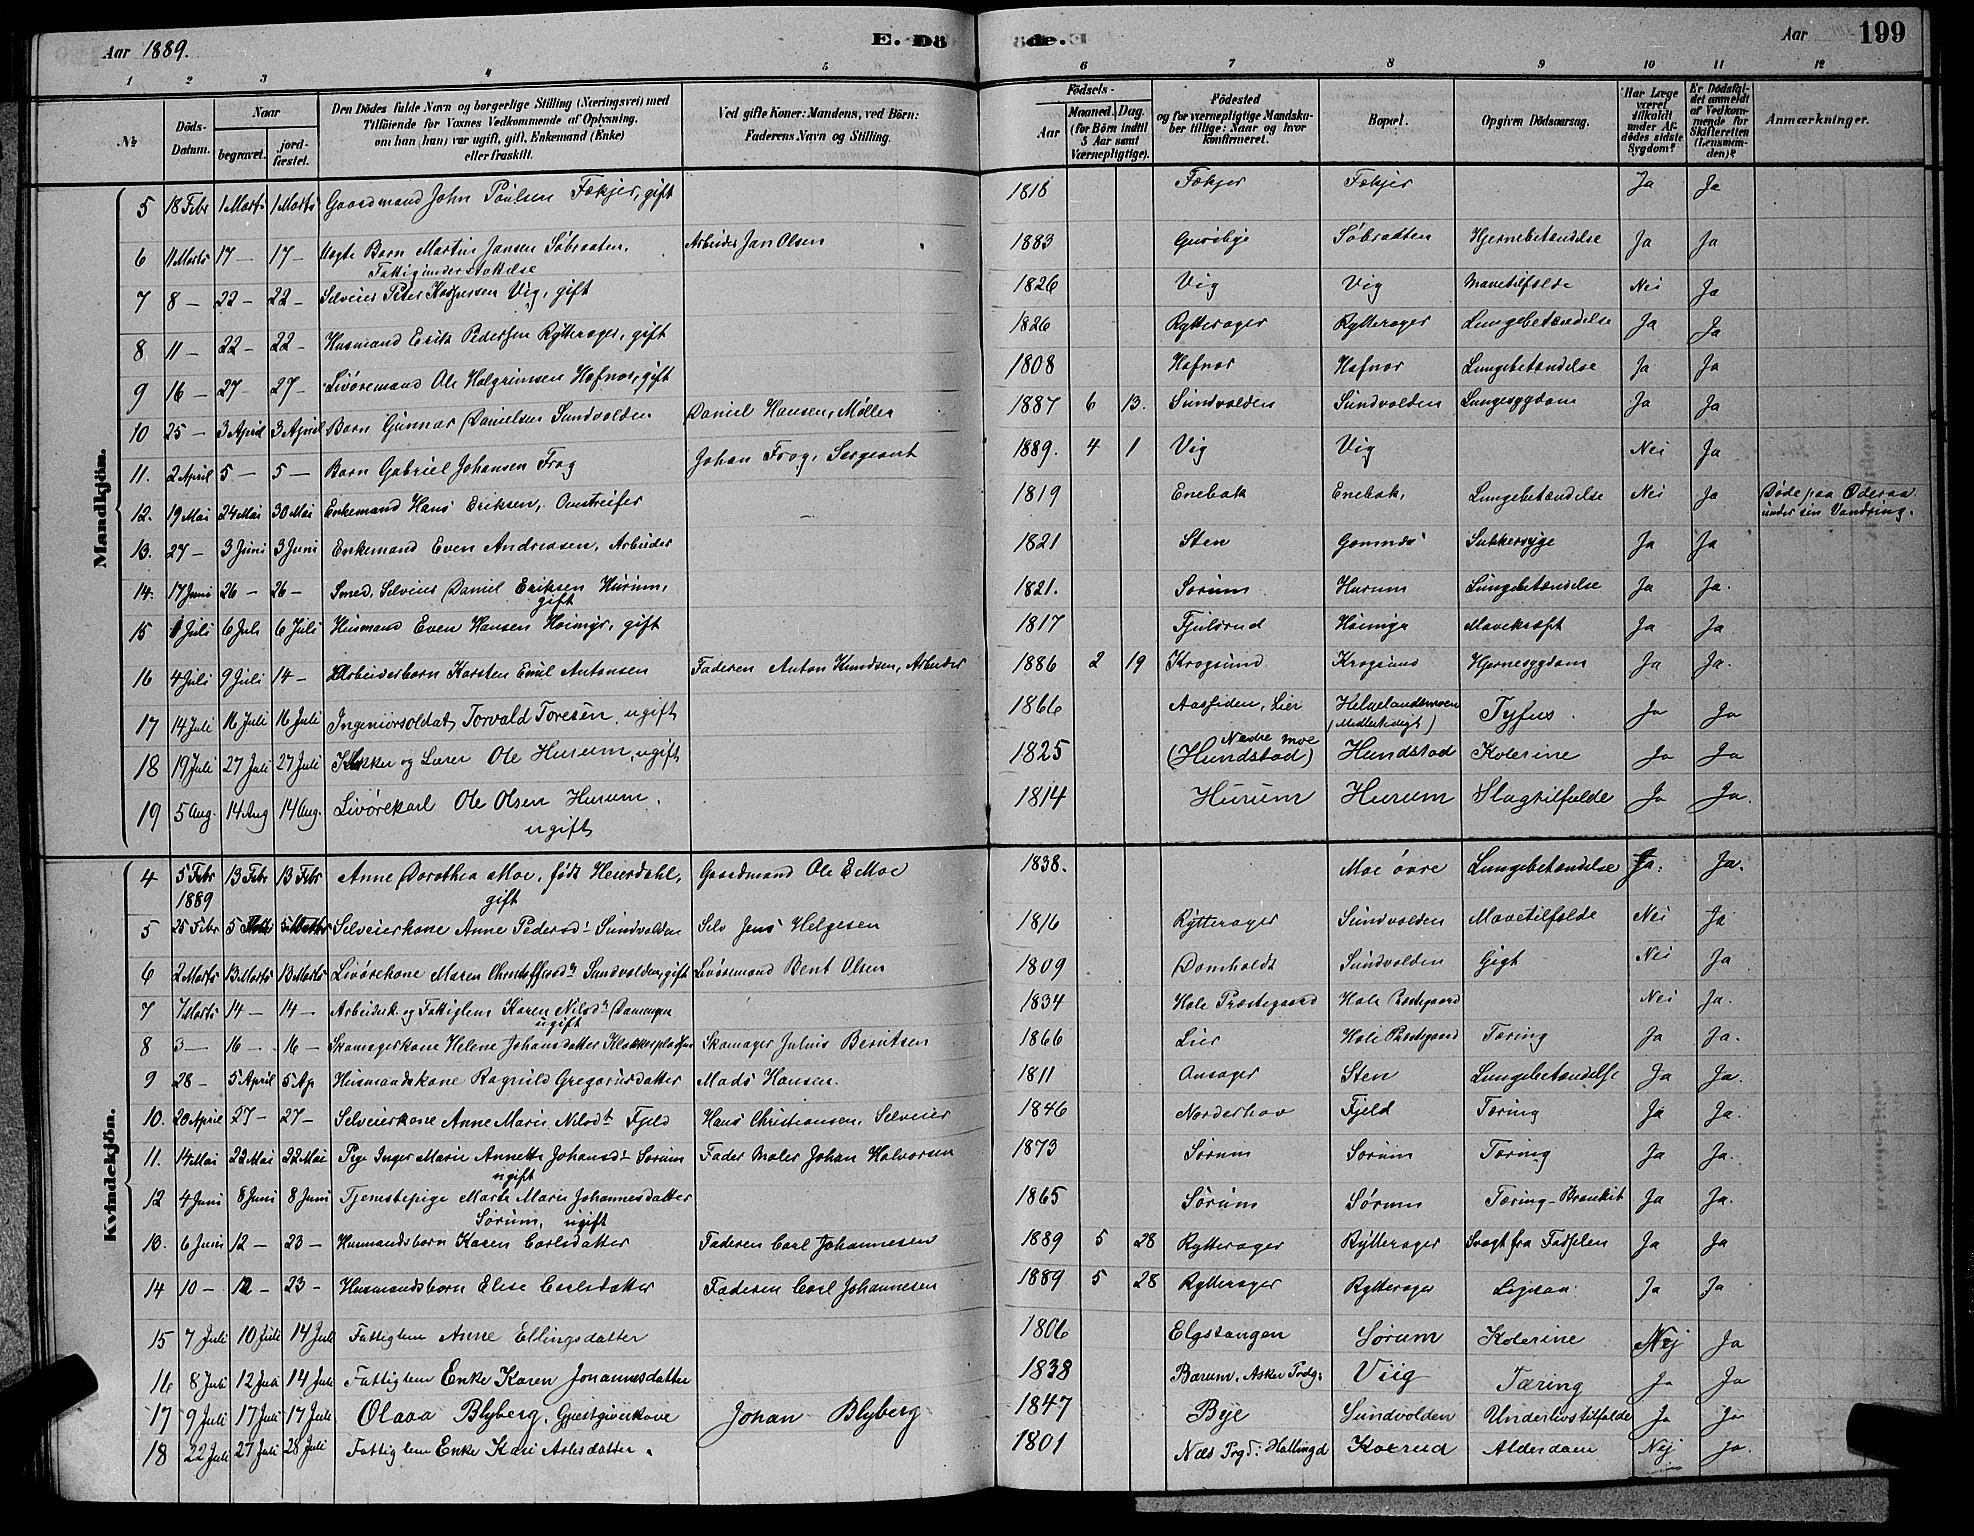 Aar 1889.
E. Döde. E
Aar 199
1 2 3 4 5 6 7 8 9 10 11 12
№ Döds-Datum. Naar begravet. jordfæstet. Den Dödes fulde Navn og borgerlige Stilling (Næringsvei) med Tilföiende for Voxnes Vedkommende af Oplysning, om han (hun) var ugift, gift, Enkemand (Enke) eller fraskilt. Ved gifte Koner: Mandens, ved Börn: Faderens Navn og Stilling. Födsels- Aar Maaned. Dag. (for Börn indtil 5 Aar samt Værnepligtige). Födested og for værnepligtige Mandskaber tillige: Naar og hvor konfirmeret. Bopæl. Opgiven Dödsaarsag. Har Læge været tilkaldt under Afdödes sidste Sygdom? Er Dödsfaldet anmeldt af Vedkommende for Skifteretten (Lensmanden)? Anmærkninger.
Mandkjön.
5 18 Febr 1 Marts 1 Marts Gaardmand John Paulsen Fækjer, gift 1818 Fækjer Fækjer Ja Ja
6 11 Marts 17 – 17 – Uægte Barn Martin Jansen Søbraaten. Arbeider Jan Olsen 1883 Søbraaten Hjernebetændelse Ja Ja
Fattigunderstøttelse
7 8 – 22 – 22 – Selveier Peter Kaspersen Vig, gift 1826 Vig Vig Mavetilfælde Nei Ja
8 11 – 22 – 22 – Husmand Erik Pedersen Rytterager, gift 1826 Rytterager Rytterager Lungebetændelse Ja Ja
9 16 – 27 – 27 – Livøremand Ole Halgrimsen Hafnor, gift 1808 Hafnor Hafnor Lungebetændelse Ja Ja
10 25 – 3 April 3 April Barn Gunnar Danielsen Sundvolden Daniel Hansen, Møller 1887 6 13. Sundvolden Sundvolden Lungesygdom Ja Ja
11. 2 April 5 – 5 – Barn Gabriel Johansen Frog Johan Frog, Sergeant 1889. 4 1 Vig Vig Nei Ja
12. 19 Mai 24 Mai 30 Mai Enkemand Hans Eriksen, Omstreifer 1819 Enebak Enebak, Lungebetændelse Nei Ja Døde paa Øderaa
under sin Vandring.
13. 27 – 3 Juni 3 Juni Enkemand Even Andreasen, Arbeider 1821 Sten Gomnæs Sukkersyge Ja Ja
14. 17 Juni 26 – 26 – Smed, Selveier Daniel Eriksen Hurum, 1821. Sørum Hurum Lungebetændelse Ja Ja.
gift
15 1 Juli 6 Juli 6 Juli Husmand Even Hansen Høimyr, gift 1817 Fjulsrud Høimyr Mavekræft Ja Ja.
16 4 Juli 9 Juli 14 – Arbeiderbarn Karsten Emil Antonsen Faderen Anton Knudsen, Arbeider 1886 2 19 Krogsund Krogsund Hjernesygdom Ja Ja.
17 14 Juli 16 Juli 16 Juli Ingeniørsoldat Torvald Toresen, ugift 1866 Aassiden, Lier Helgelandsmoen Tyfus. Ja Ja
(Midlertidigt)
18 19 Juli 27 Juli 27 Juli Klokker og Lærer Ole Hurum, ugift 1825 Nedre Moe
(Hundstad) Hundstad Kolerine Ja Ja
19 5 Aug. 14 Aug 14 Aug. Livørekarl Ole Olsen Hurum, 1814 Hurum Hurum Slagtilfælde Ja Ja.
ugift
Kvindekjön.
4 5 Febr 13 Febr 13 Febr Anne Dorothea Moe, født Heierdahl, Gaardmand Ole E Moe 1838. Moe øvre Lungebetændelse Ja. Ja.
1889 gift
5 25 Febr 5 Marts 5 Marts Selveierkone Anne Pedersd. Sundvolden Selv Jens Helgesen 1816 Rytterager Sundvolden Mavetilfælde Nei Ja
6 2 Marts 13 Marts 13 Marts Livørekone Maren Christoffersdr Sundvolden, gift Livøremand Bent Olsen 1809 Domholdt Sundvolden Gigt Nei Ja
7 7 Marts 14 – 14 – Arbeidsk. og Fattiglem Karen Nilsdr 1834 Hole Præstegaard Hole Præstegaard Nei Ja.
ugift
8 3 – 16 – 16 – Skomagerkone Helene Johansdatter Klokkerpladsen Skomager Julius Berntsen 1866 Lier Hole Præstegaard Tæring Ja Ja.
9 28 – 5 April 5 Ap Husmandskone Ragnild Gregoriusdatter Mads Hansen. 1811 Onsager Sten Lungebetændelse Ja Ja.
10. 20 April 27 – 27 – Selveierkone Anne Marie Nilsdr Fjeld Hans Christiansen, Selveier 1846 Norderhov Fjeld Tæring Ja Ja.
11. 14 Mai 22 Mai 22 Mai Pige Inger Marie Annette Johansd. Sørum Fader Maler Johan Halvorsen 1873 Sørum Sørum Tæring Ja Ja.
ugift
12 4 Juni 8 Juni 8 Juni Tjenestepige Marte Marie Johannesdatter 1865 Sørum Sørum Tæring – Bronkit Ja Ja.
Sørum, ugift
13. 6 Juni 12 – 23 – Husmandsbarn Karen Carlsdatter Faderen Carl Johannesen 1889 5 28 Rytterager Rytterager Svagt fra Fødselen Ja Ja
14 10 – 12 – 23 – Husmandsbarn Elise Carlsdatter Faderen Carl Johannesen 1889 5 28 Rytterager Rytterager Ligesaa Ja Ja
15 7 Juli 10 Juli 14 Juli Fattiglem Anne Ellingsdatter 1806 Elgstangen Sørum Kolerine Nej Ja
16 8 Juli 12 Juli 14 Juli Fattiglem Enke Karen Johannesdatter 1838 Bærum, Asker Prstg. Viig Tæring Ja Ja
17 9 Juli 17 Juli 17 Juli Olava Blyberg, Gjestgiverkone Johan Blyberg 1847 Bye Sundvolden Underlivstilfælde Ja Ja
18 22 Juli 27 Juli 28 Juli Fattiglem Enke Kari Atlesdatter. 1801 Næs Prgd: Hallingd Alderdom Nej Ja.